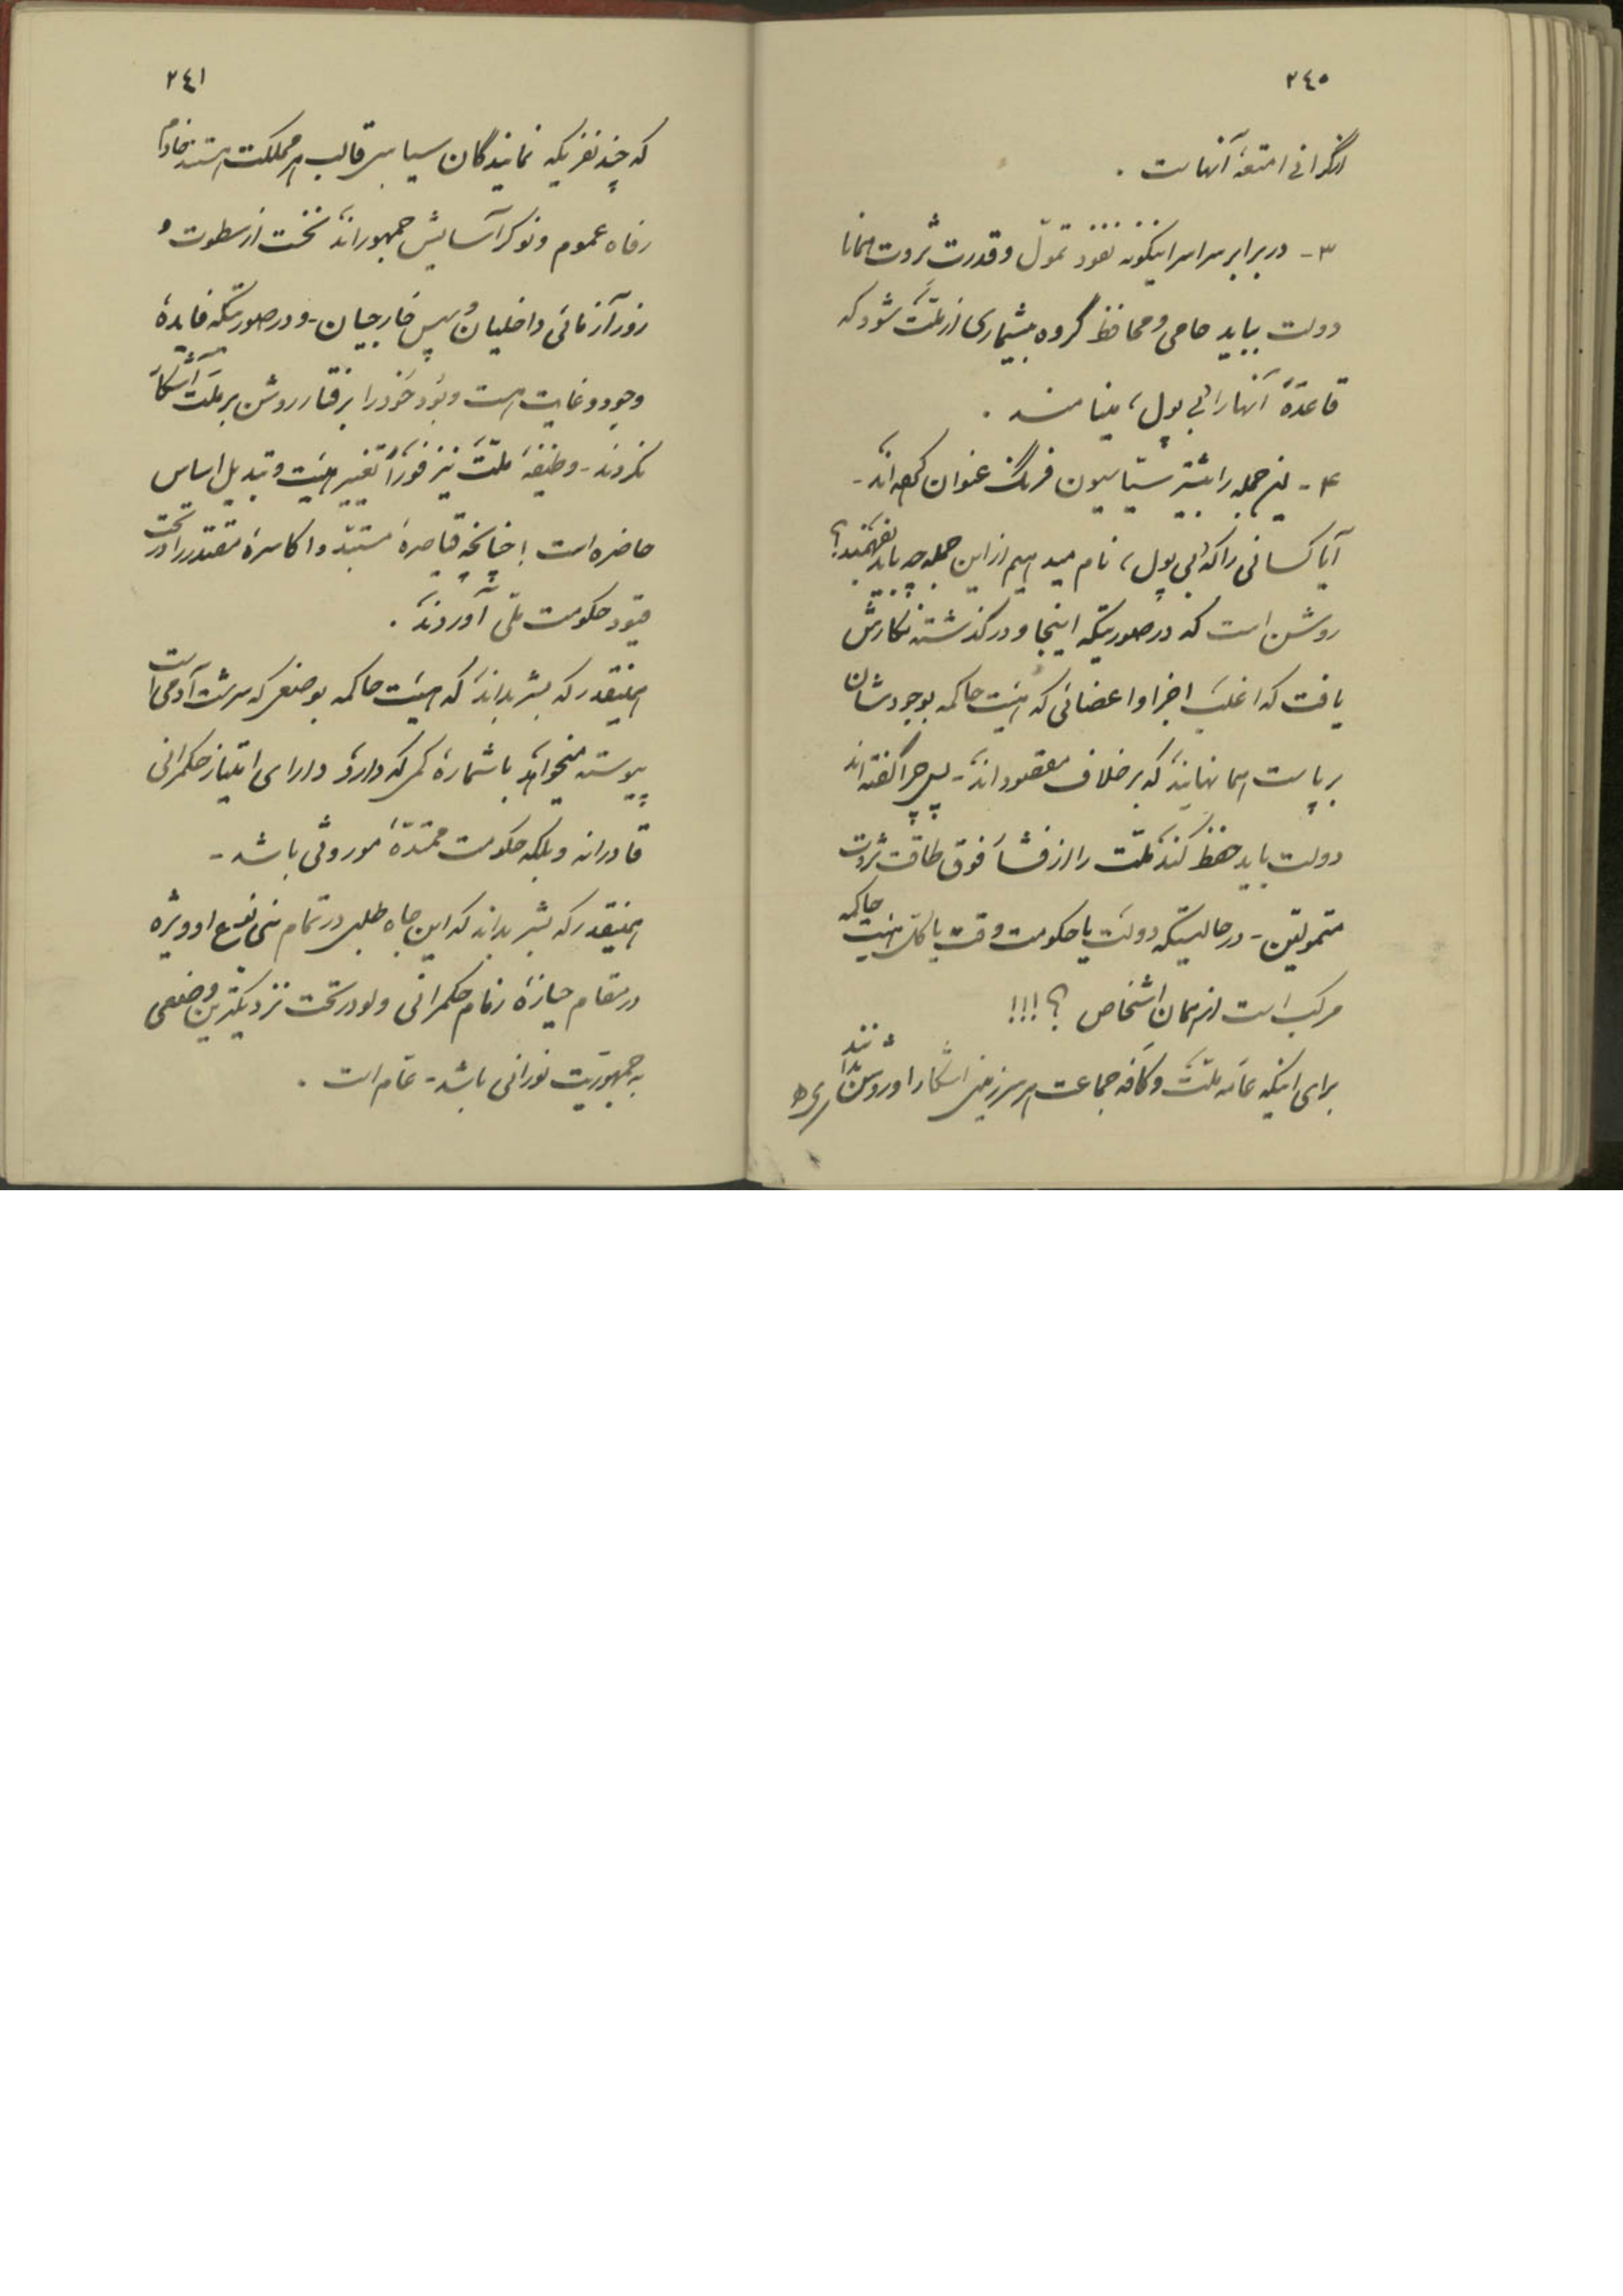 ٢٤٠
از گرانی امتعهٔ آنهاست .
٣- در برابر سراسر اینگونه نفوذ تموّل و قدرت ثروت همانا
دولت بباید حامی و محافظ گروه بیشماری از ملّت شود که
قاعدةً آنها را «بی پول» مینامند .
۴- این جمله را بیشتر سیاسیون فرنگ عنوان کرده‌اند -
آیا کسانی را که «بی پول» نام میدهیم از این جمله چه باید بفهمند؟
روشن است که در صورتیکه اینجا و در گذشته نگارش
یافت که اغلب اجزا و اعضائی که هیئت حاکمه بوجودشان
برپاست همانهایند که بر خلاف مقصوداند - پس چرا گفته‌اند
دولت باید حفظ کند ملّت را از فشار فوق طاقت ثروت
متمولین - در حالیستیکه دولت یا حکومت وقت یا کلّ هیئت حاکمه
مرکب است از همان اشخاص ؟!!!
برای اینکه عامه ملّت و کافه جماعت هر سرزمینی آشکارا و روشن بدانند
٢٤١
که چند نفریکه نمایندگان سیاسی قالب هر مملکت هستند خادم
رفاه عموم و نوکر آسایش جمهوراند نخست از سطوت و
زورآزمائی داخلیان و سپس خارجیان - و در صورتیکه فایدهٔ
وجود و غایت هست و بود خود را برفتار روشن بر ملّت آشکار
نکردند - وظیفهٔ ملّت نیز فوراً تغییر هیئت و تبدیل اساس
حاضره است ! چنانچه قیاصرهٔ مستبد و اکاسرهٔ مقتدر را در تحت
قیود حکومت ملّی آوردند .
همینقدر که بشر بداند که هیئت حاکمه بوضعی که سرشت آدمی است
پیوسته میخواهد با شمارهٔ کمی که دارد دارای امتیاز حکمرانی
قادرانه و بلکه حکومت ممتدهٔ موروثی باشد -
همینقدر که بشر بداند که این جاه طلبی در تمام بنی نوع او ویژه
در مقام حیازهٔ زمام حکمرانی ولو در تحت نزدیکترین وضعی
به جمهوریّت نورانی باشد - عام است .